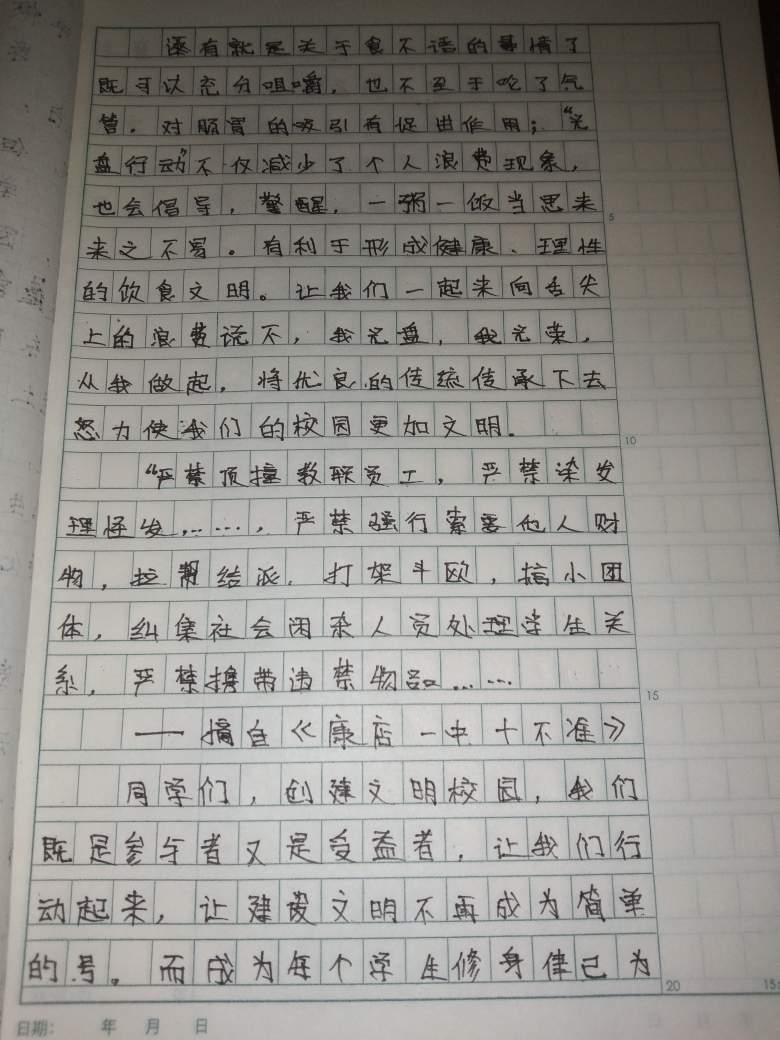 还有就是关于食不语的事情了
既可以充分咀嚼，也不至于呛了气
管，对肠胃的吸引有促进作用；“光
盘行动”不仅减少了个人浪费现象，
也会倡导，警醒，一粥一饭当思来
来之不易。有利于形成健康、理性
的饮食文明。让我们一起来向舌尖
上的浪费说不，我光盘，我光荣，
从我做起，将优良的传统传承下去
努力使我们的校园更加文明。
“严禁顶撞教职员工，严禁染发
理怪发，……，严禁强行索要他人财
物，拉帮结派，打架斗欧，搞小团
体，纠集社会闲杂人员处理学生关
系，严禁携带违禁物品……
——摘自《康店一中十不准》
同学们，创建文明校园，我们
既是参与者又是受益者，让我们行
动起来，让建设文明不再成为简单
的号。而成为每个学生修身律己为
5
10
15
20
15
日期： 年 月 日